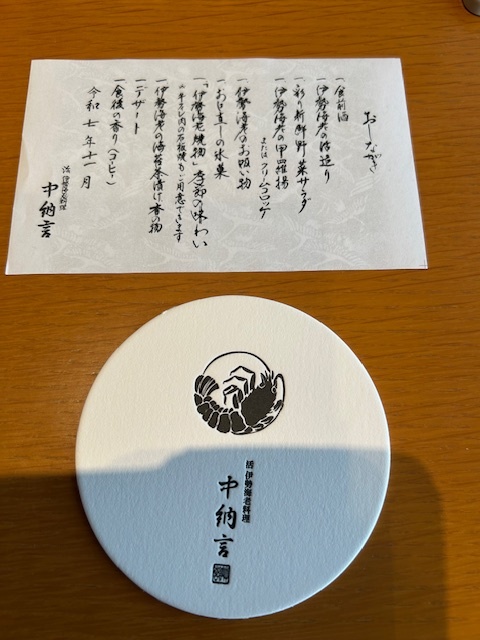 おしながき
一食前酒
一伊勢海老の活造り
一彩り新鮮野菜サラダ
一伊勢海老の甲羅揚
またはクリームコロッケ
一伊勢海老のお吸い物
一お口直しの氷菓
一「伊勢海老焼物」季節の味わい
牛ヒレ肉の石板焼もご用意できます
一伊勢海老の海苔茶漬け、香の物
一デザート
一食後の香り(コーヒー)
令和七年十一月
活伊勢海老料理
中納言
活伊勢海老料理
中納言